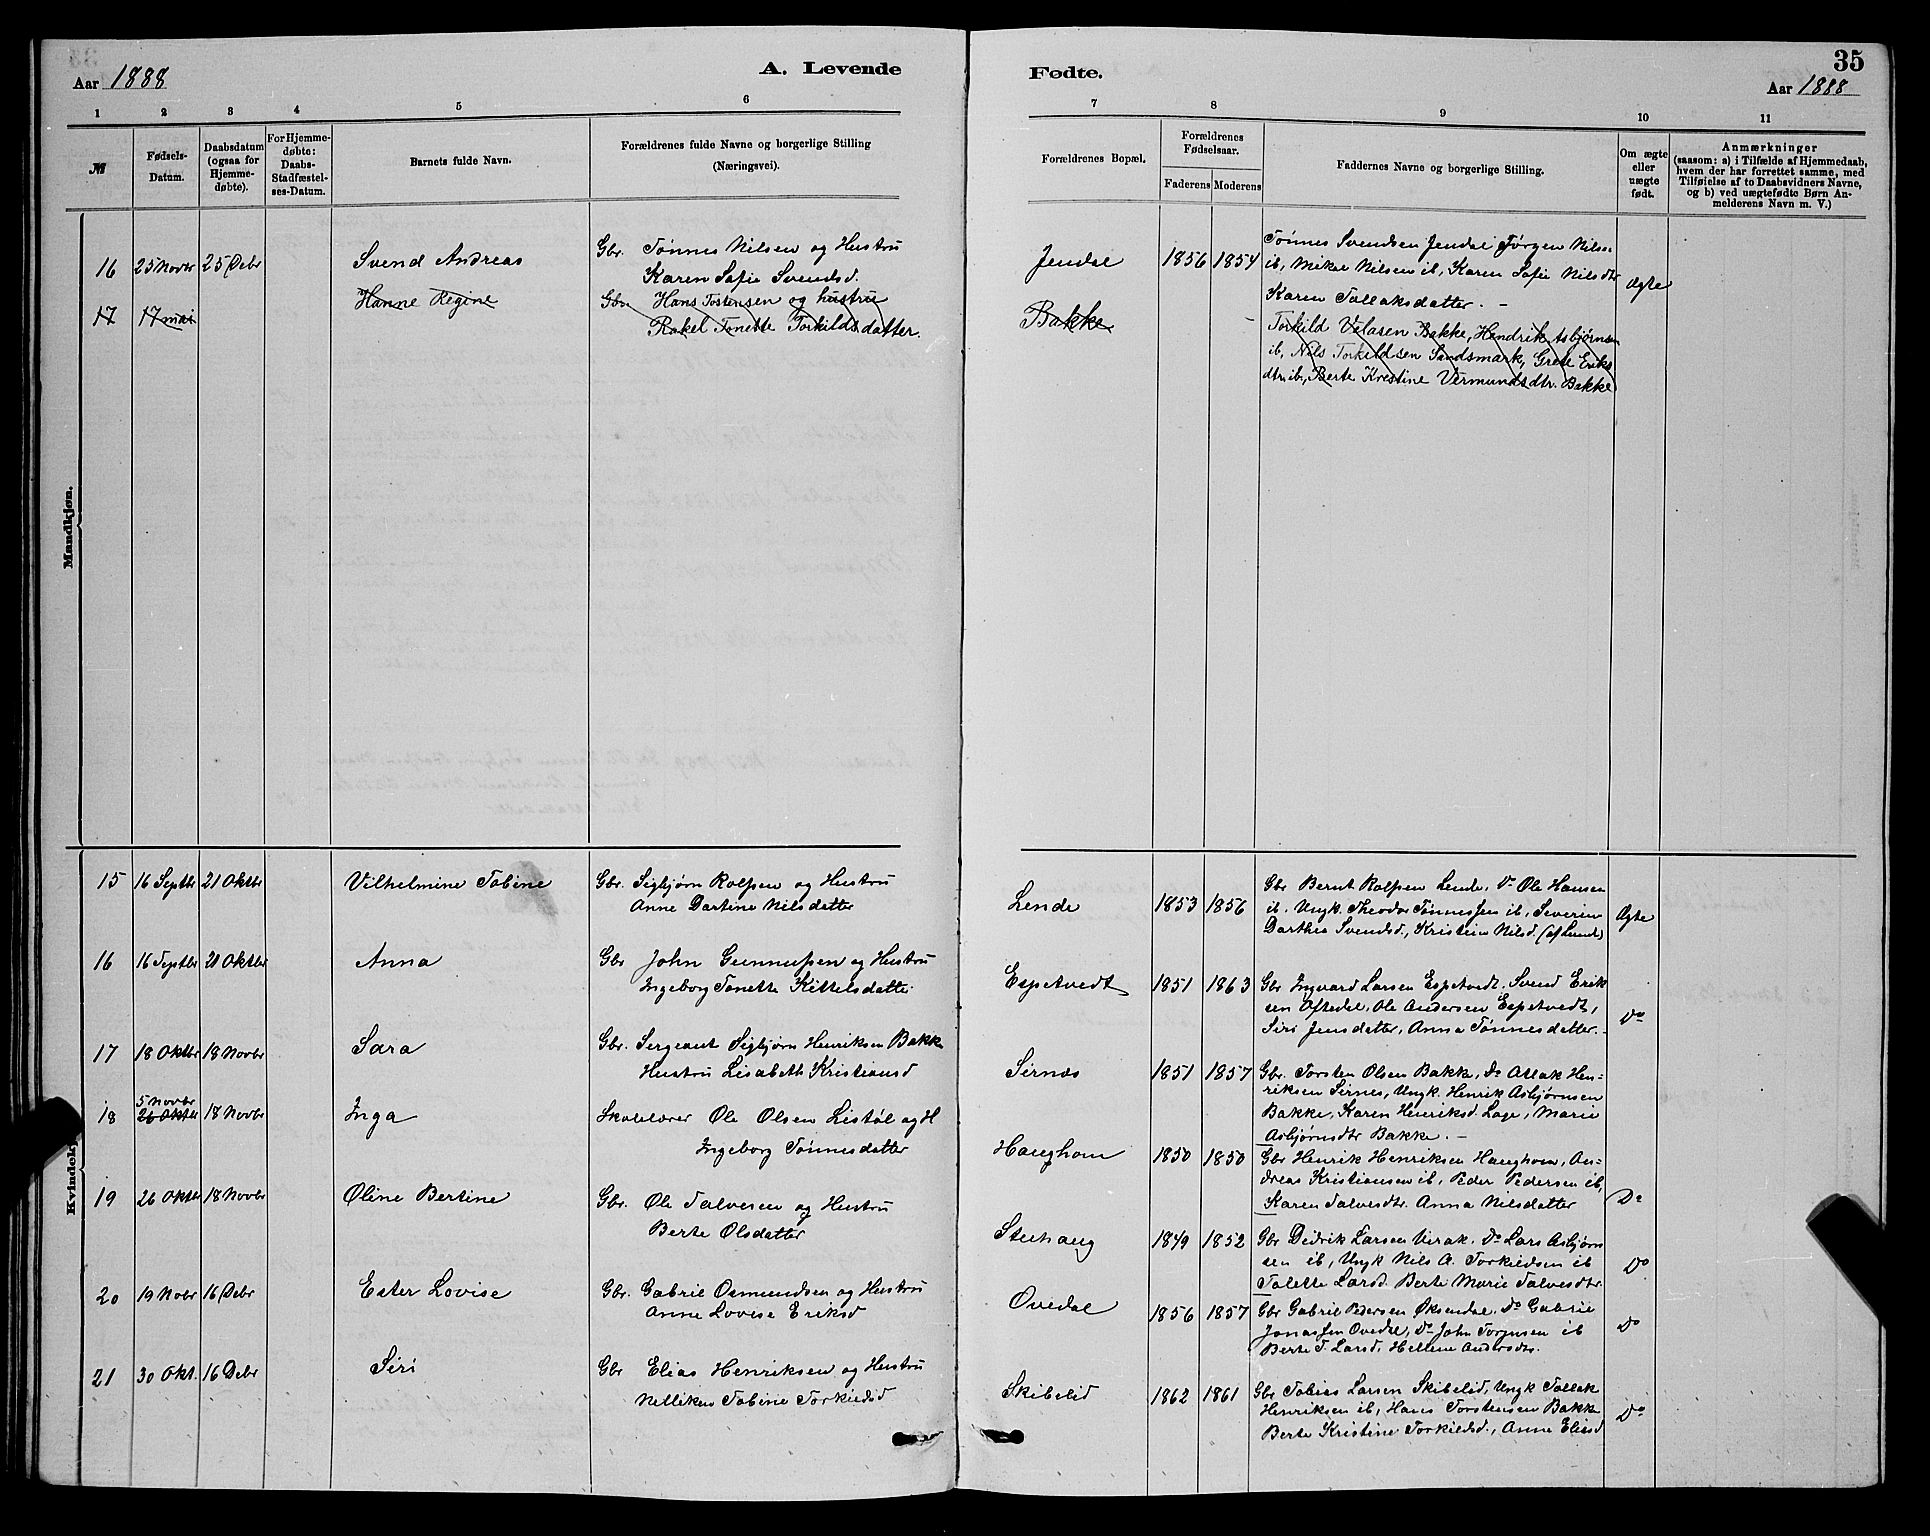 Aar 1888
A. Levende
Fødte.
35
Aar 1888
1 2 3 4 5 6 7 8 9 10 11
№
Fødsels-
Datum.
Daabsdatum
(ogsaa for
Hjemme-
døbte).
For Hjemme-
døbte:
Daabs-
Stadfæstel-
ses-Datum.
Barnets fulde Navn.
Forældrenes fulde Navne og borgerlige Stilling
(Næringsvei).
Forældrenes Bopæl.
Forældrenes
Fødselsaar.
Faderens Moderens
Faddernes Navne og borgerlige Stilling.
Om ægte
eller
uægte
født.
Anmærkninger
(saasom: a) i Tilfælde af Hjemmedaab,
hvem der har forrettet samme, med
Tilføielse af to Daabsvidners Navne,
og b) ved uægtefødte Børn An-
melderens Navn m. V.)
Mandkjøn.
16 25 Novbr 25 Debr Svend Andreas
Gbr. Tønnes Nilsen og Hustru
Karen Sofie Svendsd.
Jendal 1856 1854
Tønnes Svendsen Jendal Jørgen Nilsen
ib, Mikal Nilsen ib, Karen Sofie Nilsdtr
Karen Tallaksdatter. -
Ægte
17 17 mai Hanne Regine
Gbr Hans Tostensen og hustru
Rakel Tonette Torkildsdatter.
Bakke
Torkild Valasen Bakke, Hendrik Asbjørnsen
ib, Nils Torkildsen Sandsmark, Grete Eriks
dtr. ib, Berte Kristine Vermundsdtr. Bakke
15 16 Septbr 21 Oktbr Vilhelmine Tobine
Gbr. Sigbjørn Rolfsen og Hustru
Anne Dartine Nilsdatter
Lende 1853 1856
Gbr Bernt Rolfsen Lende, Do Ole Hansen
ib. Ungk. Theodor Tønnessen ib, Severine
Darthea Svendsd., Kristine Nilsd. (af Lunde)
Ægte
16 16 Septbr 21 Oktbr Anna
Gbr John Gunnufsen og Hustru
Ingeborg Tonette Kittelsdatter
Espetvedt 1851 1863
Gbr Ingvard Larsen Espetvedt. Svend Erik
sen Oftedal, Ole Andersen Espetvedt,
Siri Jensdatter, Anna Tønnesdatter.
Do
17 18 Oktbr 18 Novbr Sara
Gbr. Sergeant Sigbjørn Henriksen Bakke
Hustru Lisabeth Kristiansd
Sirnes 1851 1857
Gbr. Torsten Olsen Bakke, Do Atlak Hen-
riksen Sirnes, Ungk. Henrik Asbjørnsen
Bakke, Karen Henriksd. Lage, Marie
Asbjørnsdtr Bakke. -
18 5 Novbr
26 Oktbr 18 Novbr Inga
Skolelærer Ole Olsen Listøl og H
Ingeborg Tønnesdatter
Haughom 1850 1850
Gbr Henrik Henriksen Haughom, An-
dreas Kristiansen ib, Peder Pedersen ib,
Karen Talvesdtr. Anna Nilsdatter
Do
19 26 Oktbr 18 Novbr Oline Bertine
Gbr. Ole Talvesen og Hustru
Berte Olsdatter
Stenhaug 1849 1852
Gbr Didrik Larsen Virak. Do Lars Asbjørn
sen ib, Ungk Nils A. Torkildsen ib
Talette Larsd. Berte Marie Talvesdtr
Do
20 19 Nvbr 16 Debr Ester Lovise
Gbr. Gabriel Osmundsen og Hustru
Anne Lovise Eriksd
Ovedal 1856 1857
Gbr Gabriel Pedersen Øksendal. Do Gabriel
Jonassen Ovedal, Do John Torjusen ib
Berte T. Larsd. Hellene Andersdtr.
Do
Kvindekj
21 30 Okt. 16 Debr Siri
Gbr Elias Henriksen og Hustru
Nilliken Tobine Torkildsd
Skibelid 1862 1861
Gbr Tobias Larsen Skibelid, Ungk Tallak
Henriksen ib, Hans Torstensen Bakke
Berte Kristine Torkildsd., Anne Eliasd
Do